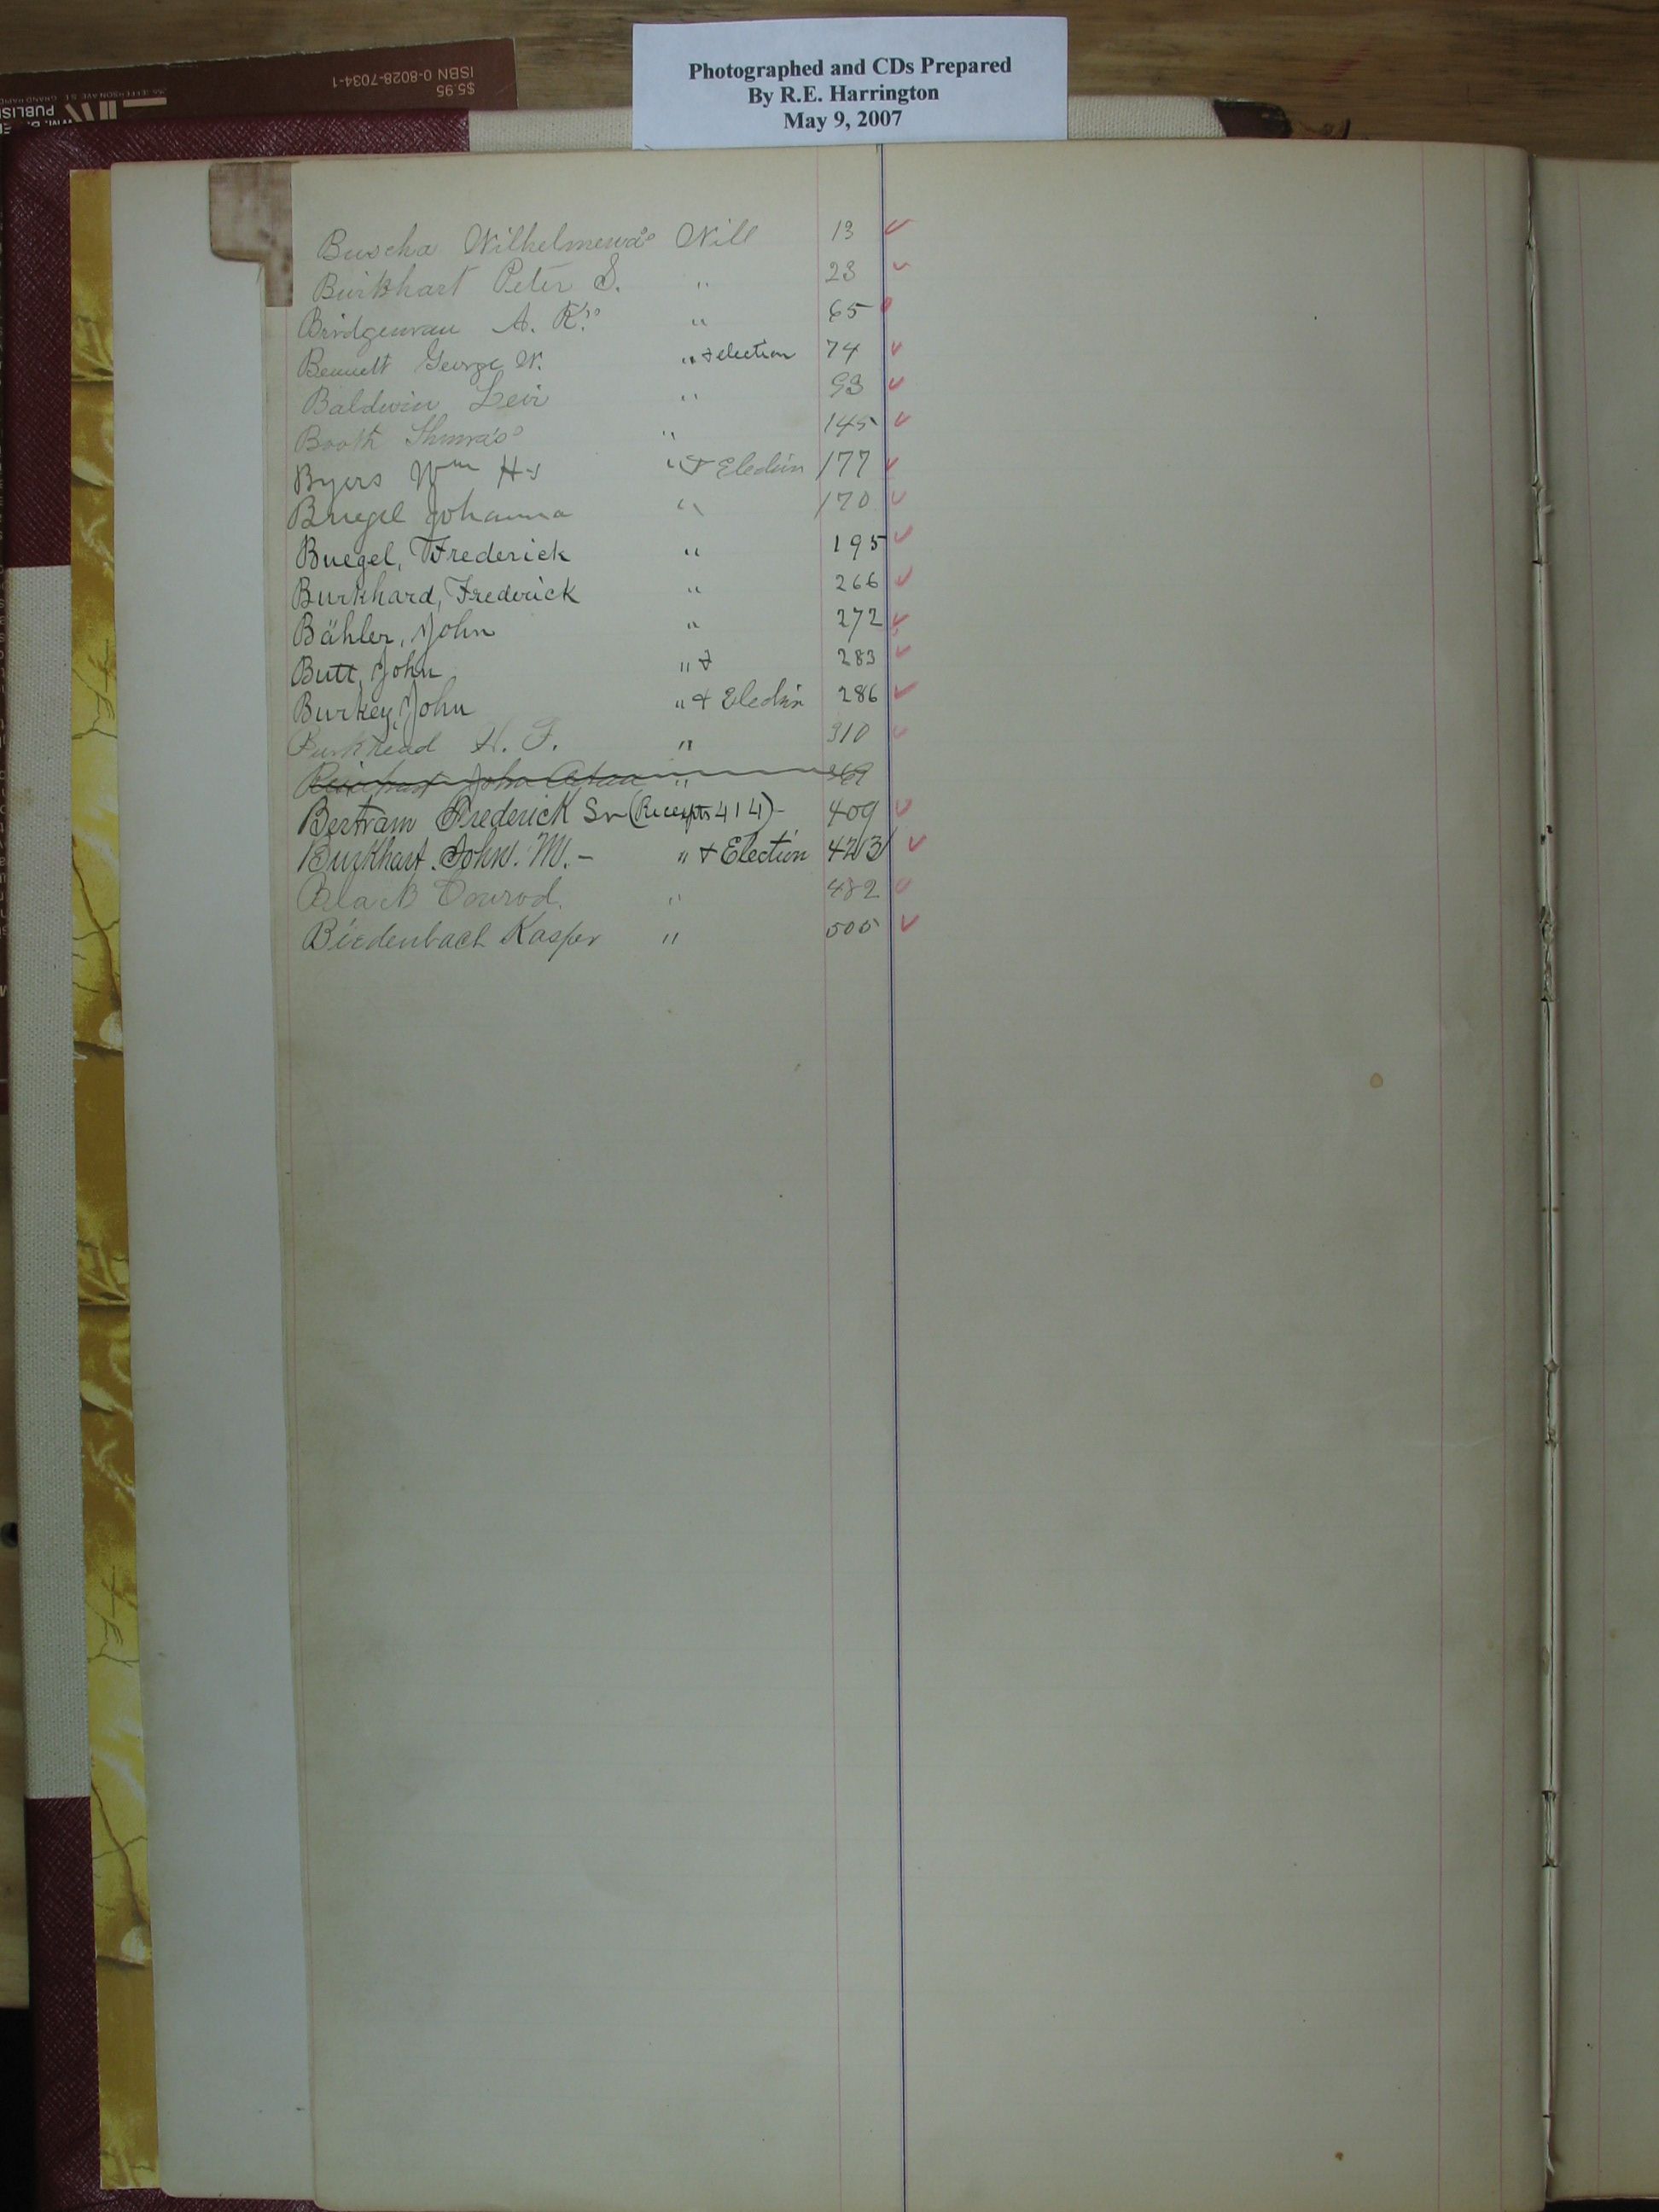 $5.95
ISBN 0-8028-7034-1
Photographed and CDs Prepared
By R.E. Harrington
May 9, 2007
Buscha Wilhelmena's Will 13
Burkhart Peter S. " 23
Bridgeman A. K's " 65
Bennett George W. " & election 74
Baldwin Levi " 93
Booth Thomas' " 145
Byers Wm H's " & Election 177
Bruegel Johanna " 170
Buegel, Frederick " 195
Burkhard, Frederick " 266
Bähler, John " 272
Butt, John " & 283
Burkey, John " & Election 286
Burkhead H. F. " 310
John " 369
Bertram Frederick Sr (Receipts 414) - 409
Burkhart John. M. - " & Election 423
Conrod. " 482
Biedenbach Kasper " 505